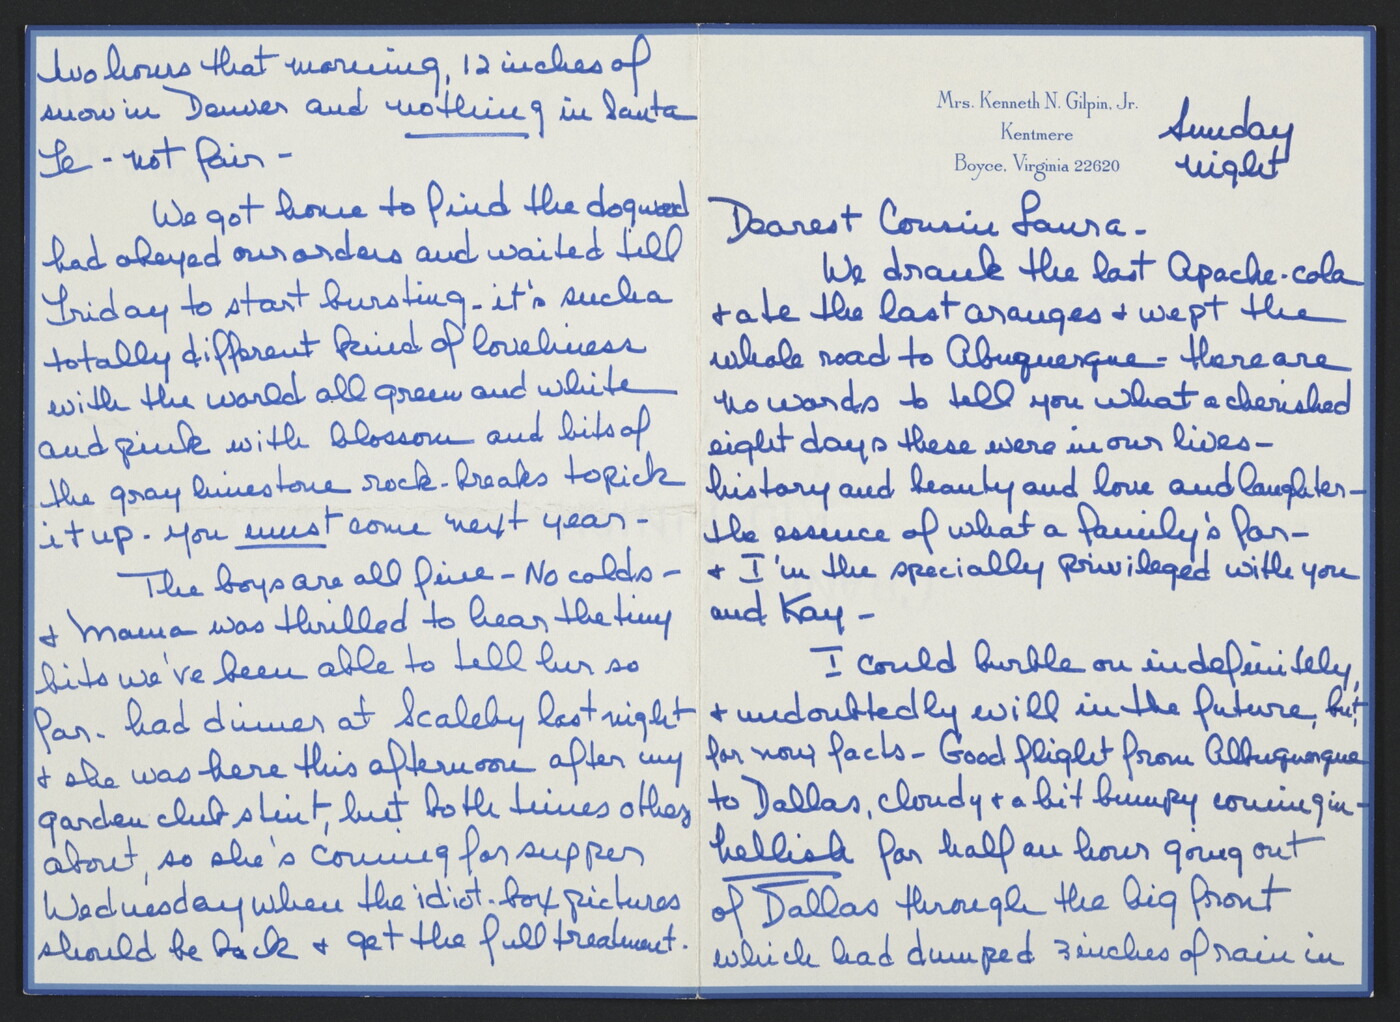 Mrs. Kenneth N. Gilpin, Jr.
Kentmere
Boyce, Virginia 22620
Sunday
night
Dearest Cousin Laura -
We drank the last Apache-cola
+ ate the last oranges + wept the
whole road to Abuquerque - there are
no words to tell you what a cherished
eight days these were in our lives -
history and beauty and love and laughter -
the essence of what a family's for -
+ I'm the specially privileged with you
and Kay -
I could burble on indefinitely,
+ undoubtedly will in the future, but
for now facts - Good flight from Albuquerque
to Dallas, cloudy + a bit bumpy coming in -
hellish for half an hour going out
of Dallas through the big front
which had dumped 3 inches of rain in
two hours that morning, 12 inches of
snow in Denver and nothing in Santa
Fe - not fair -
We got home to find the dogwood
had obeyed our orders and waited till
Friday to start bursting - it's such a
totally different kind of loveliness
with the world all green and white
and pink with blossom and bits of
the gray limestone rock-breaks to pick
it up. You must come next year -
The boys are all fine - No colds -
+ Mama was thrilled to hear the tiny
bits we've been able to tell her so
far - had dinner at Scaleby last night
+ she was here this afternoon after my
garden club stint, but both times others
about, so she's coming for supper
Wednesday when the idiot-box pictures
should be back + get the full treatment.